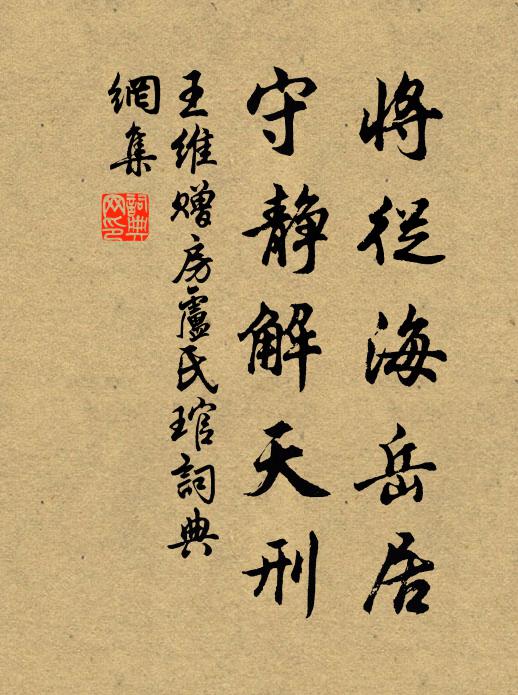 将從海岳居
守静解天刑
王維贈房盧氏琯詞典
網集
詞典
网印